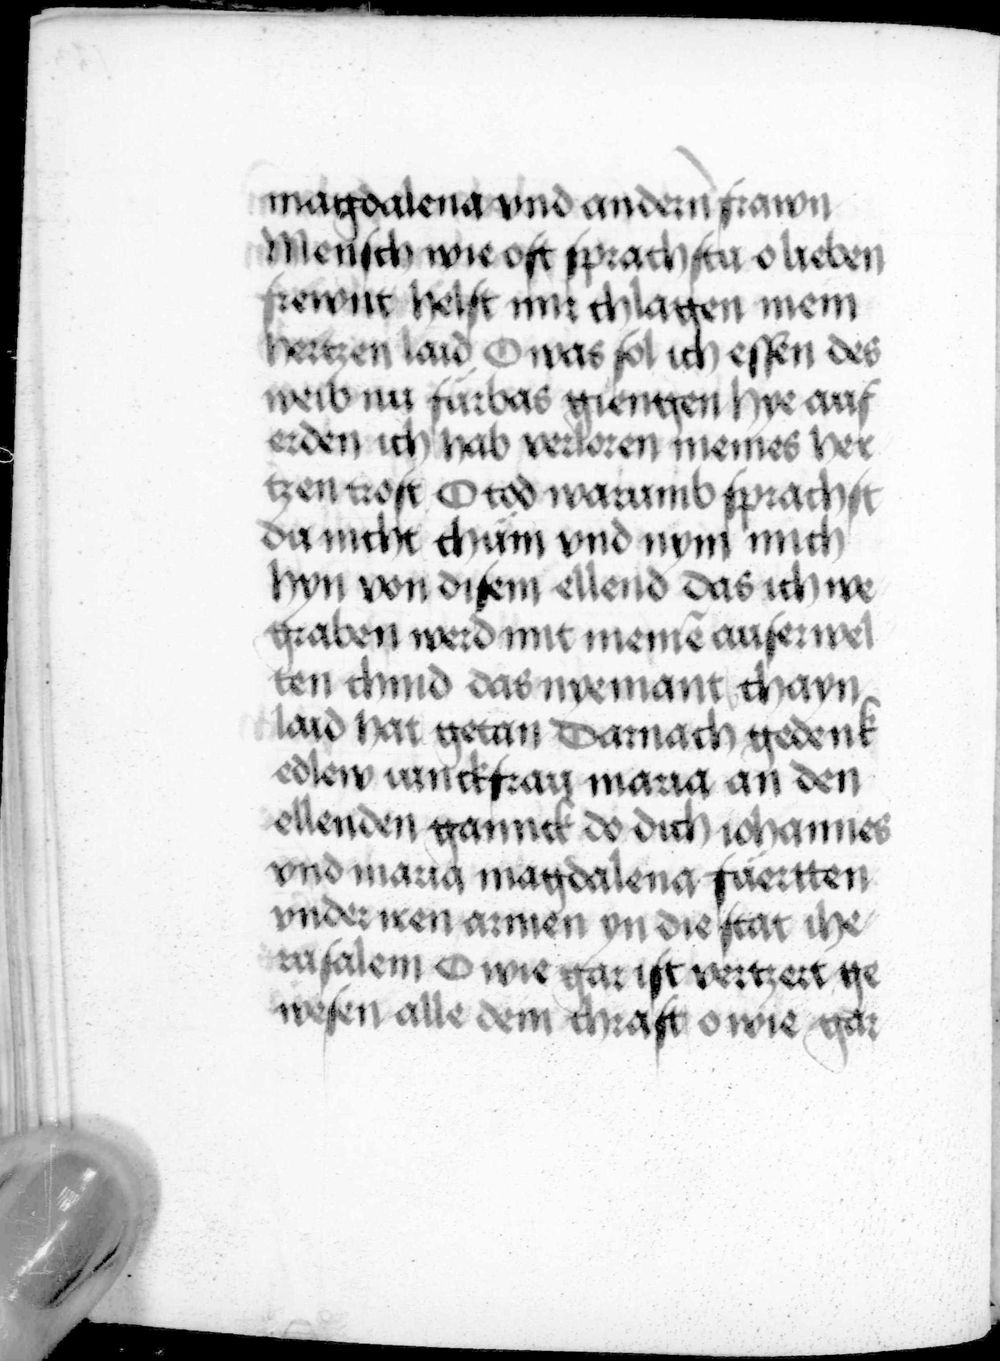 magdalena vnd andern frawn
Mensch wie oft sprachstu o lieben
frewnt helft mir chlagen mein
hertzen laid O was sol ich essen des
weib nu fürbas giengen hye auf
erden ich hab verloren meines her
tzen trost O tod warumb sprachst
du nicht chüm vnd nym mich
hyn von disem ellend das ich we
graben werd mit meinē auserwel
ten chind das nyemant chayn
laid hat getan Darnach gedenk
edlew iunckfraw maria an den
ellenden gannck do dich iohannes
vnd maria magdalena füertten
vnder iren armen yn die stat ihe
rusalem O wie gar ist vertzert ge
wesen alle dein chraft o wie gar